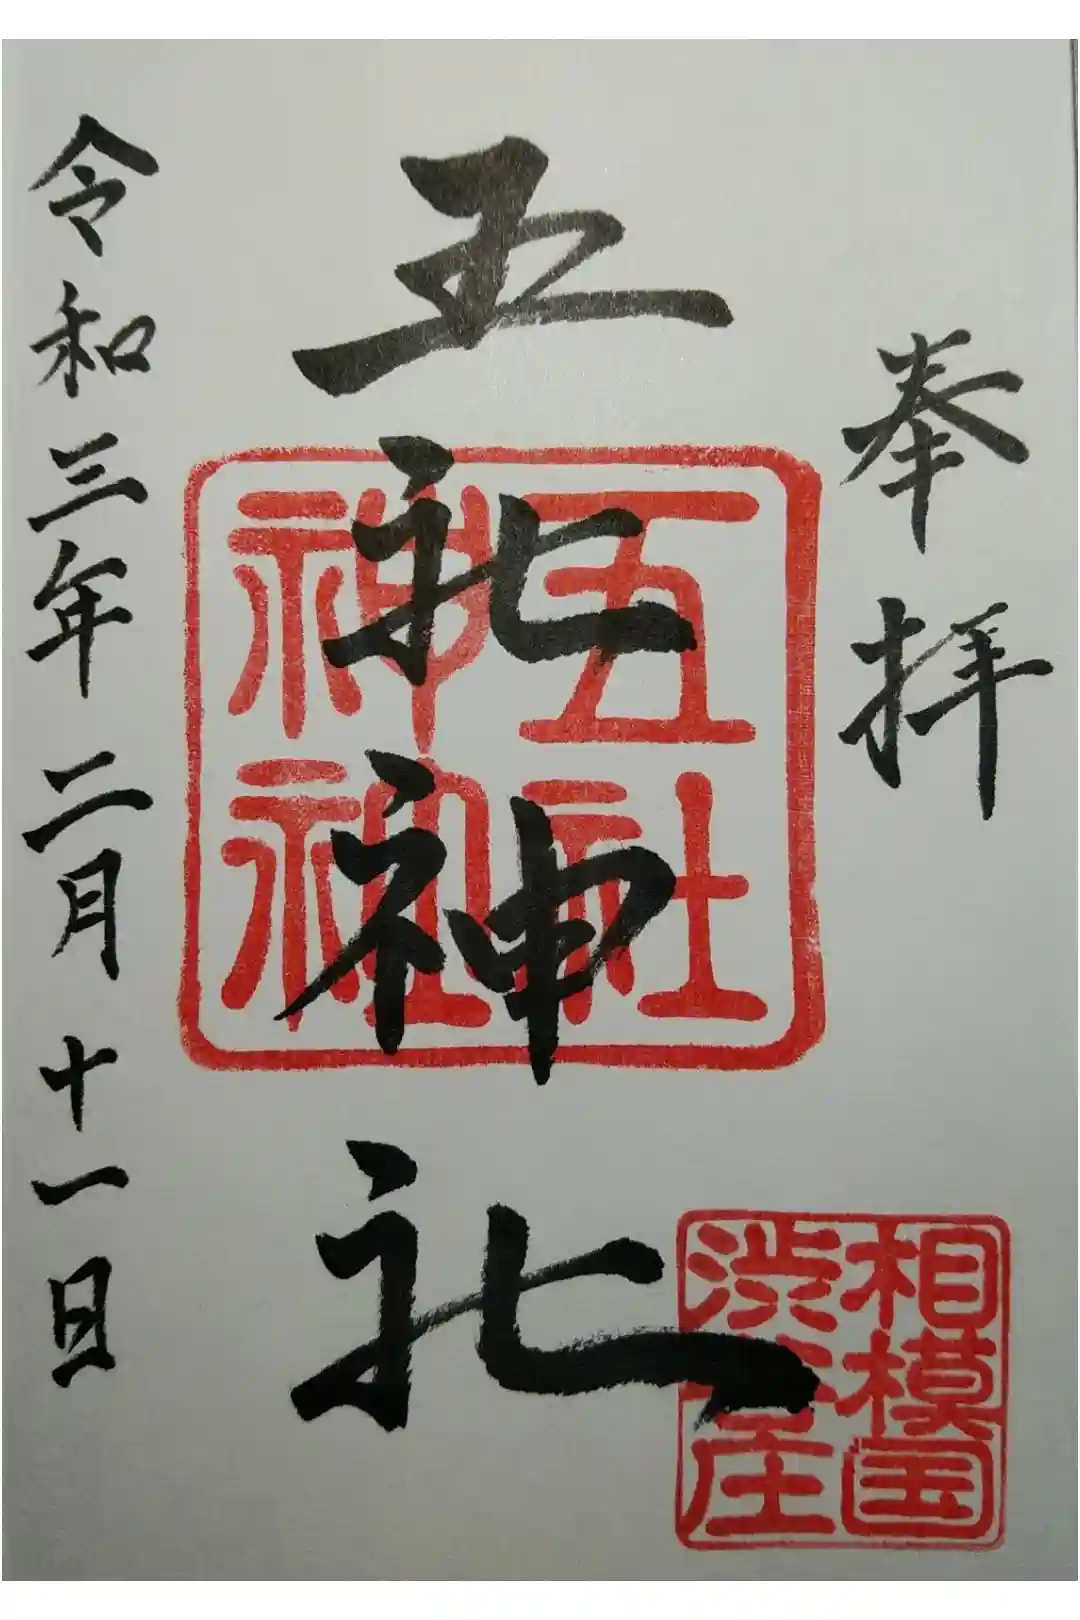 奉拝
五社神社
五社
神社
令和三年二月十一日
相模国
渋谷庄